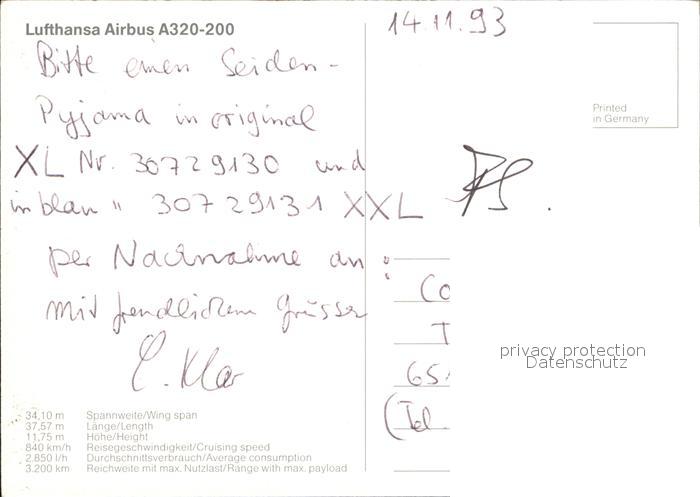 Lufthansa Airbus A320-200
14.11.93
Bitte einen Seiden-
Pyjama in original
XL Nr. 30729130 und
in blau " 30729131 XXL
per Nachnahme an:
mit freundlichen Grüssen
Printed
in Germany
Co
T
65
(Tel
privacy protection
Datenschutz
34,10 m Spannweite/Wing span
37,57 m Länge/Length
11,75 m Höhe/Height
840 km/h Reisegeschwindigkeit/Cruising speed
2.850 l/h Durchschnittsverbrauch/Average consumption
3.200 km Reichweite mit max. Nutzlast/Range with max. payload